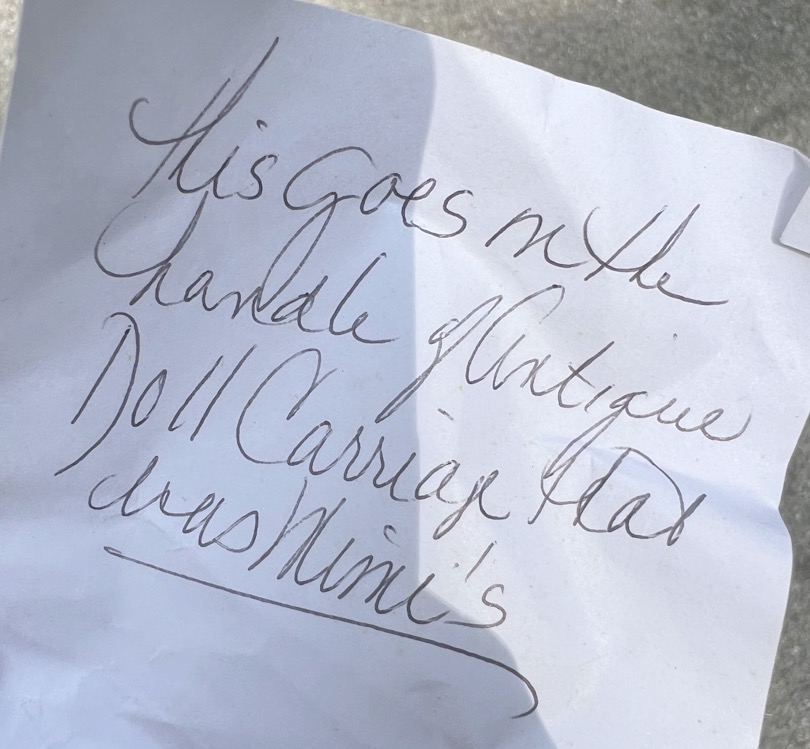 This Goes on the
handle of Antique
Doll Carriage that
was Mimi's